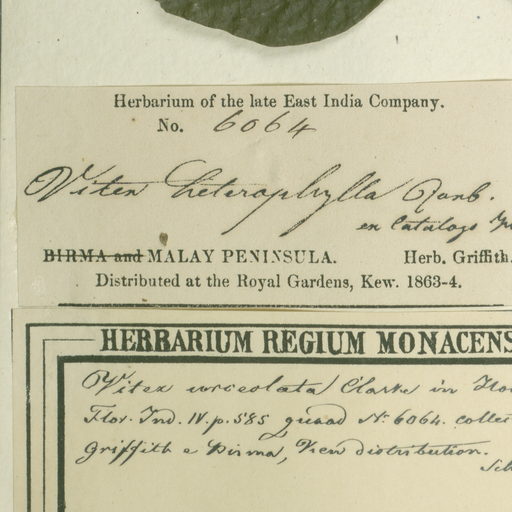 Herbarium of the late East India Company.
No. 6064
Vitex heterophylla Roxb.
en Catalogo
BIRMA and MALAY PENINSULA. Herb. Griffith.
Distributed at the Royal Gardens, Kew. 1863-4.
HERBARIUM REGIUM MONACENS
Vitex urceolata Clarke in
Flor. Ind. IV. p. 585 quoad No. 6064. collec
Griffith e Birma, Kew distribution.
Sch